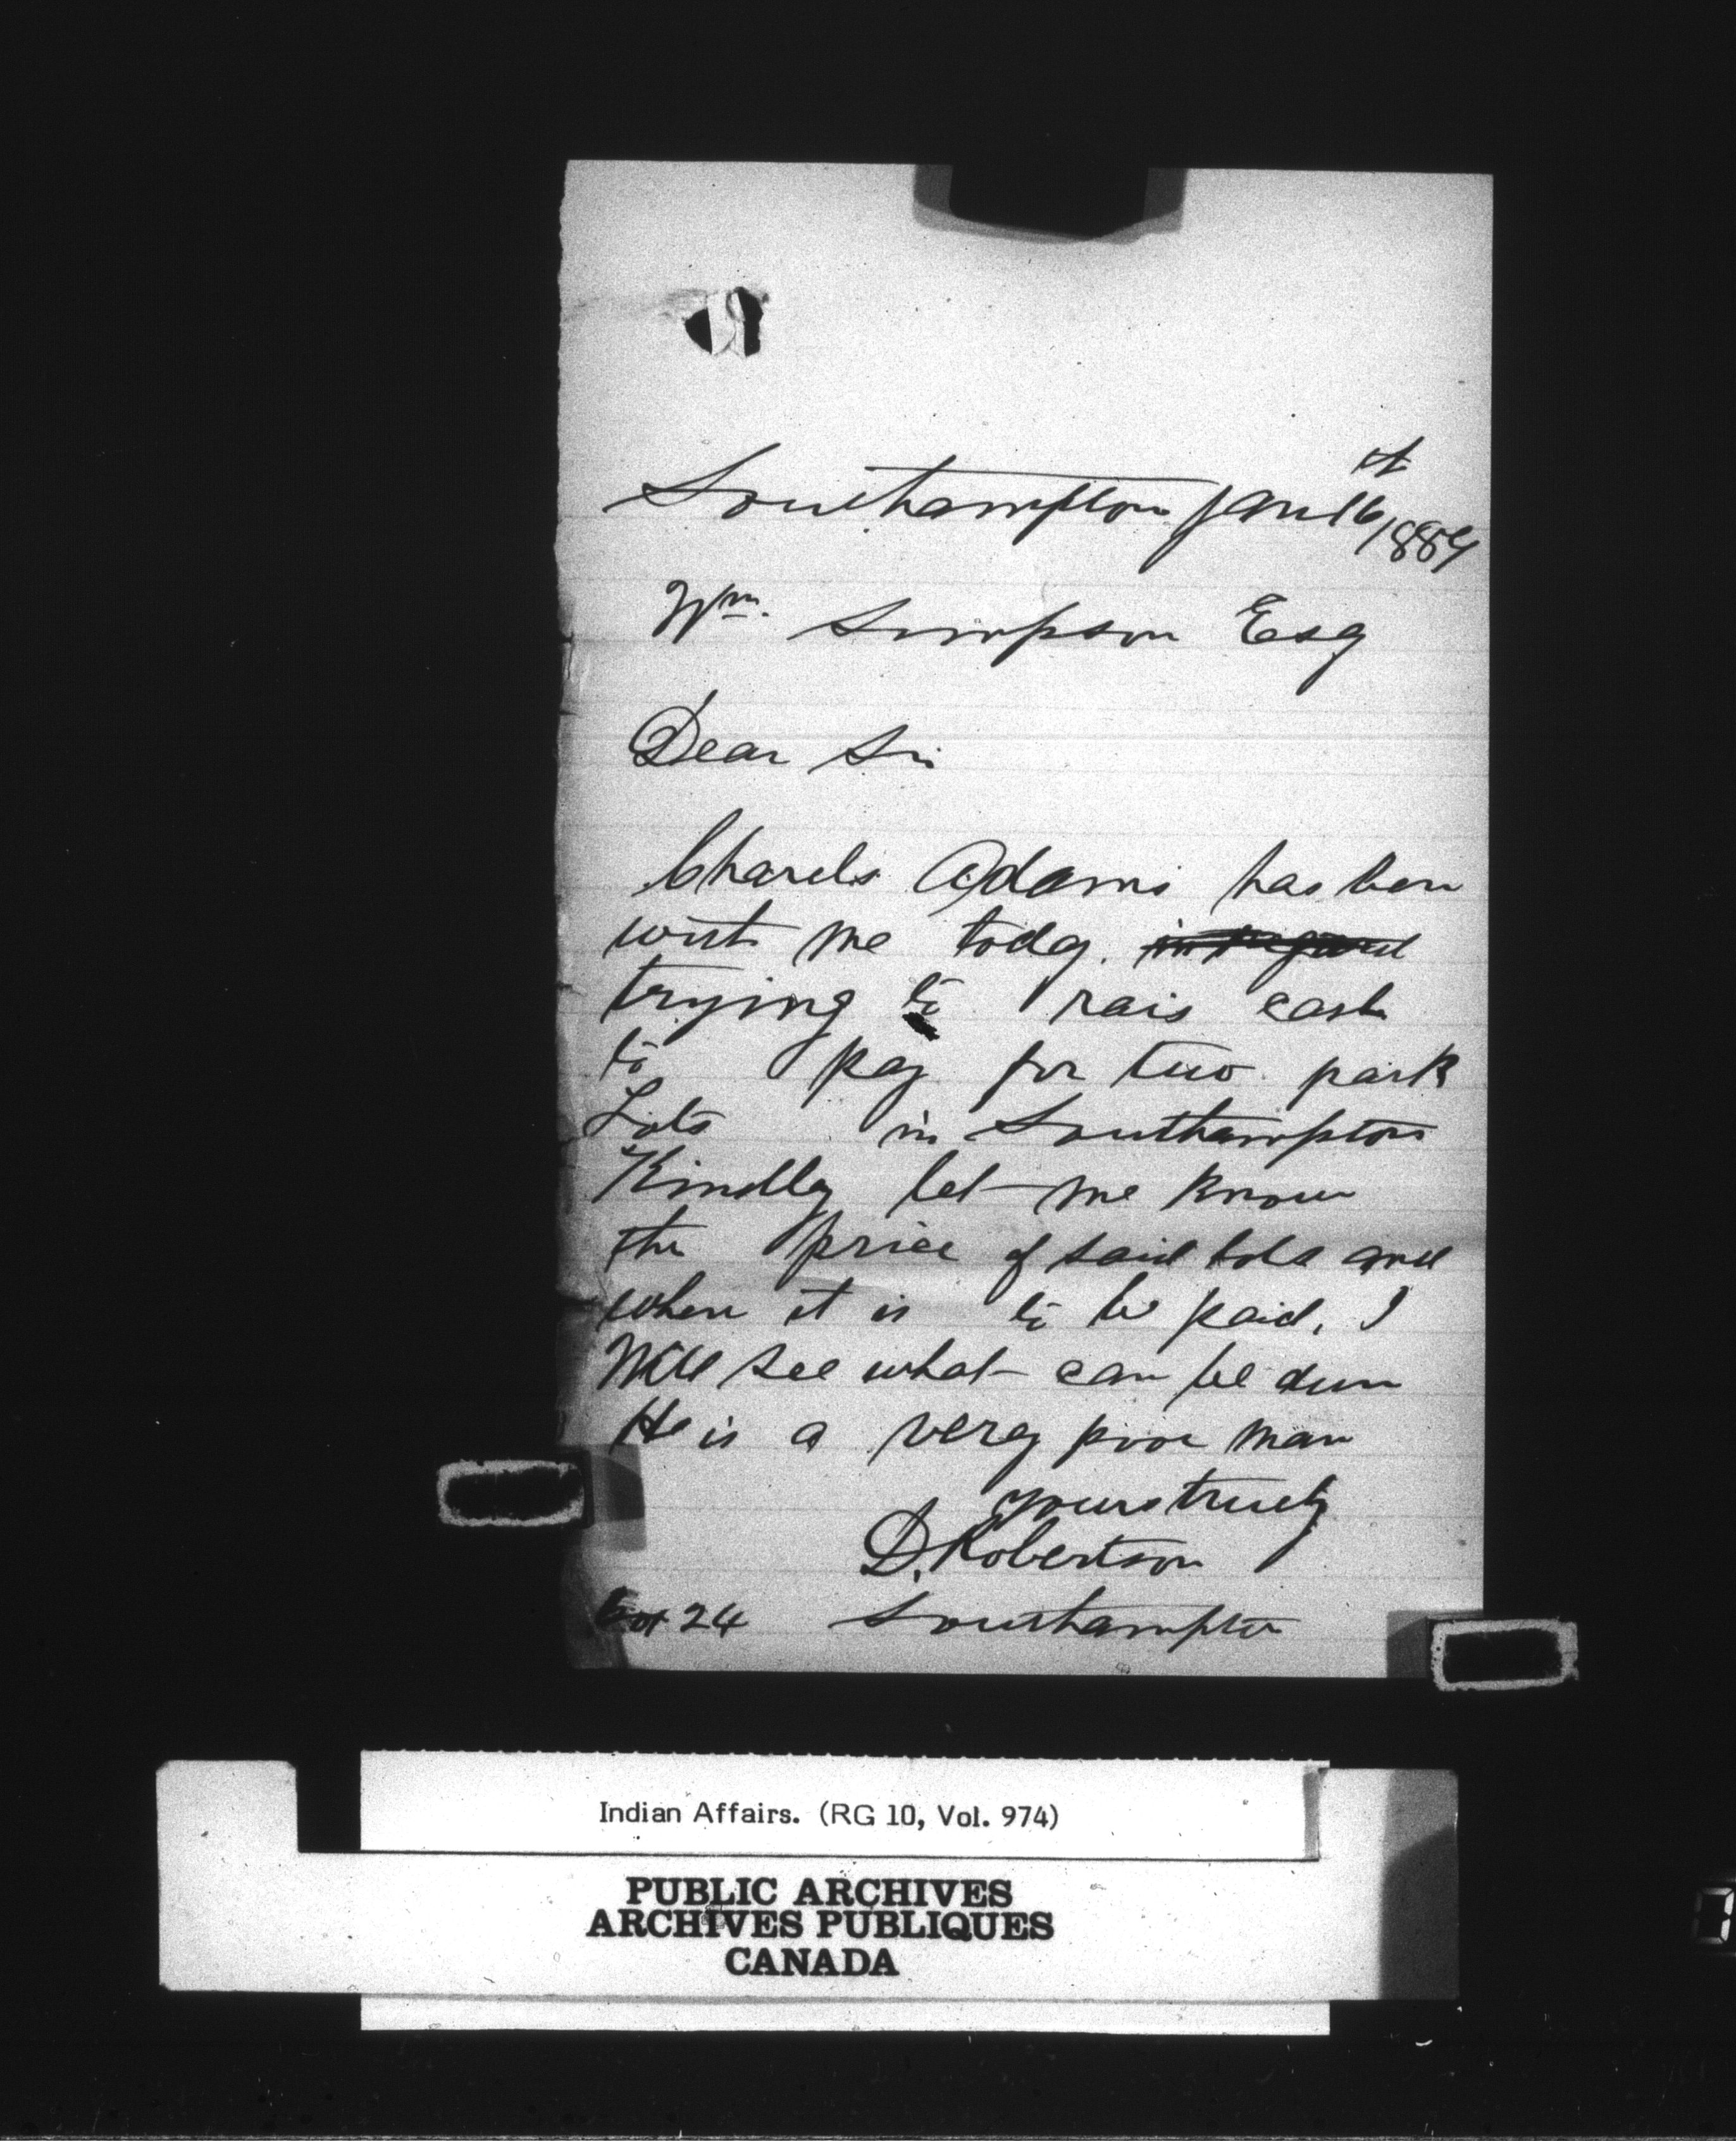 Southampton Jan 16th 1889
Wm. Simpson Esq
Dear Sir
Charels Adams has ben
with me today. in regard
trying to rais cash
to pay for two park
Lots in Southampton
Kindly let me know
the price of said lots and
when it is to be paid, I
Will see what can be dun
He is a very poor man
yours truly
D. Robertson
Box 24 Southampton
Indian Affairs. (RG 10, Vol. 974)
PUBLIC ARCHIVES
ARCHIVES PUBLIQUES
CANADA